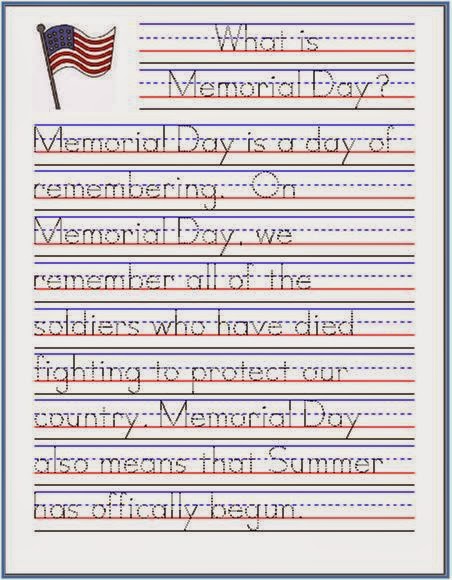 What is
Memorial Day?
Memorial Day is a day of
remembering. On
Memorial Day, we
remember all of the
soldiers who have died
fighting to protect our
country. Memorial Day
also means that Summer
has offically begun.